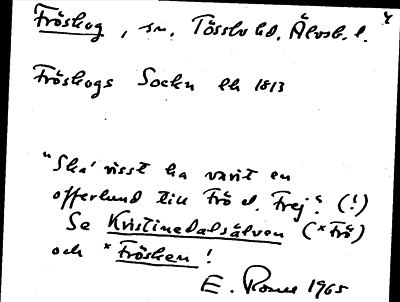 Fröskog, sn. Tössbo hd, Älvsb. l.
Fröskogs Sockn Lk 1813
"Ska' visst ha varit en
offerlund till Frö d. Frej." (!)
Se Kristinedalsälven (*Frö)
och *Frösken!
E. 1965